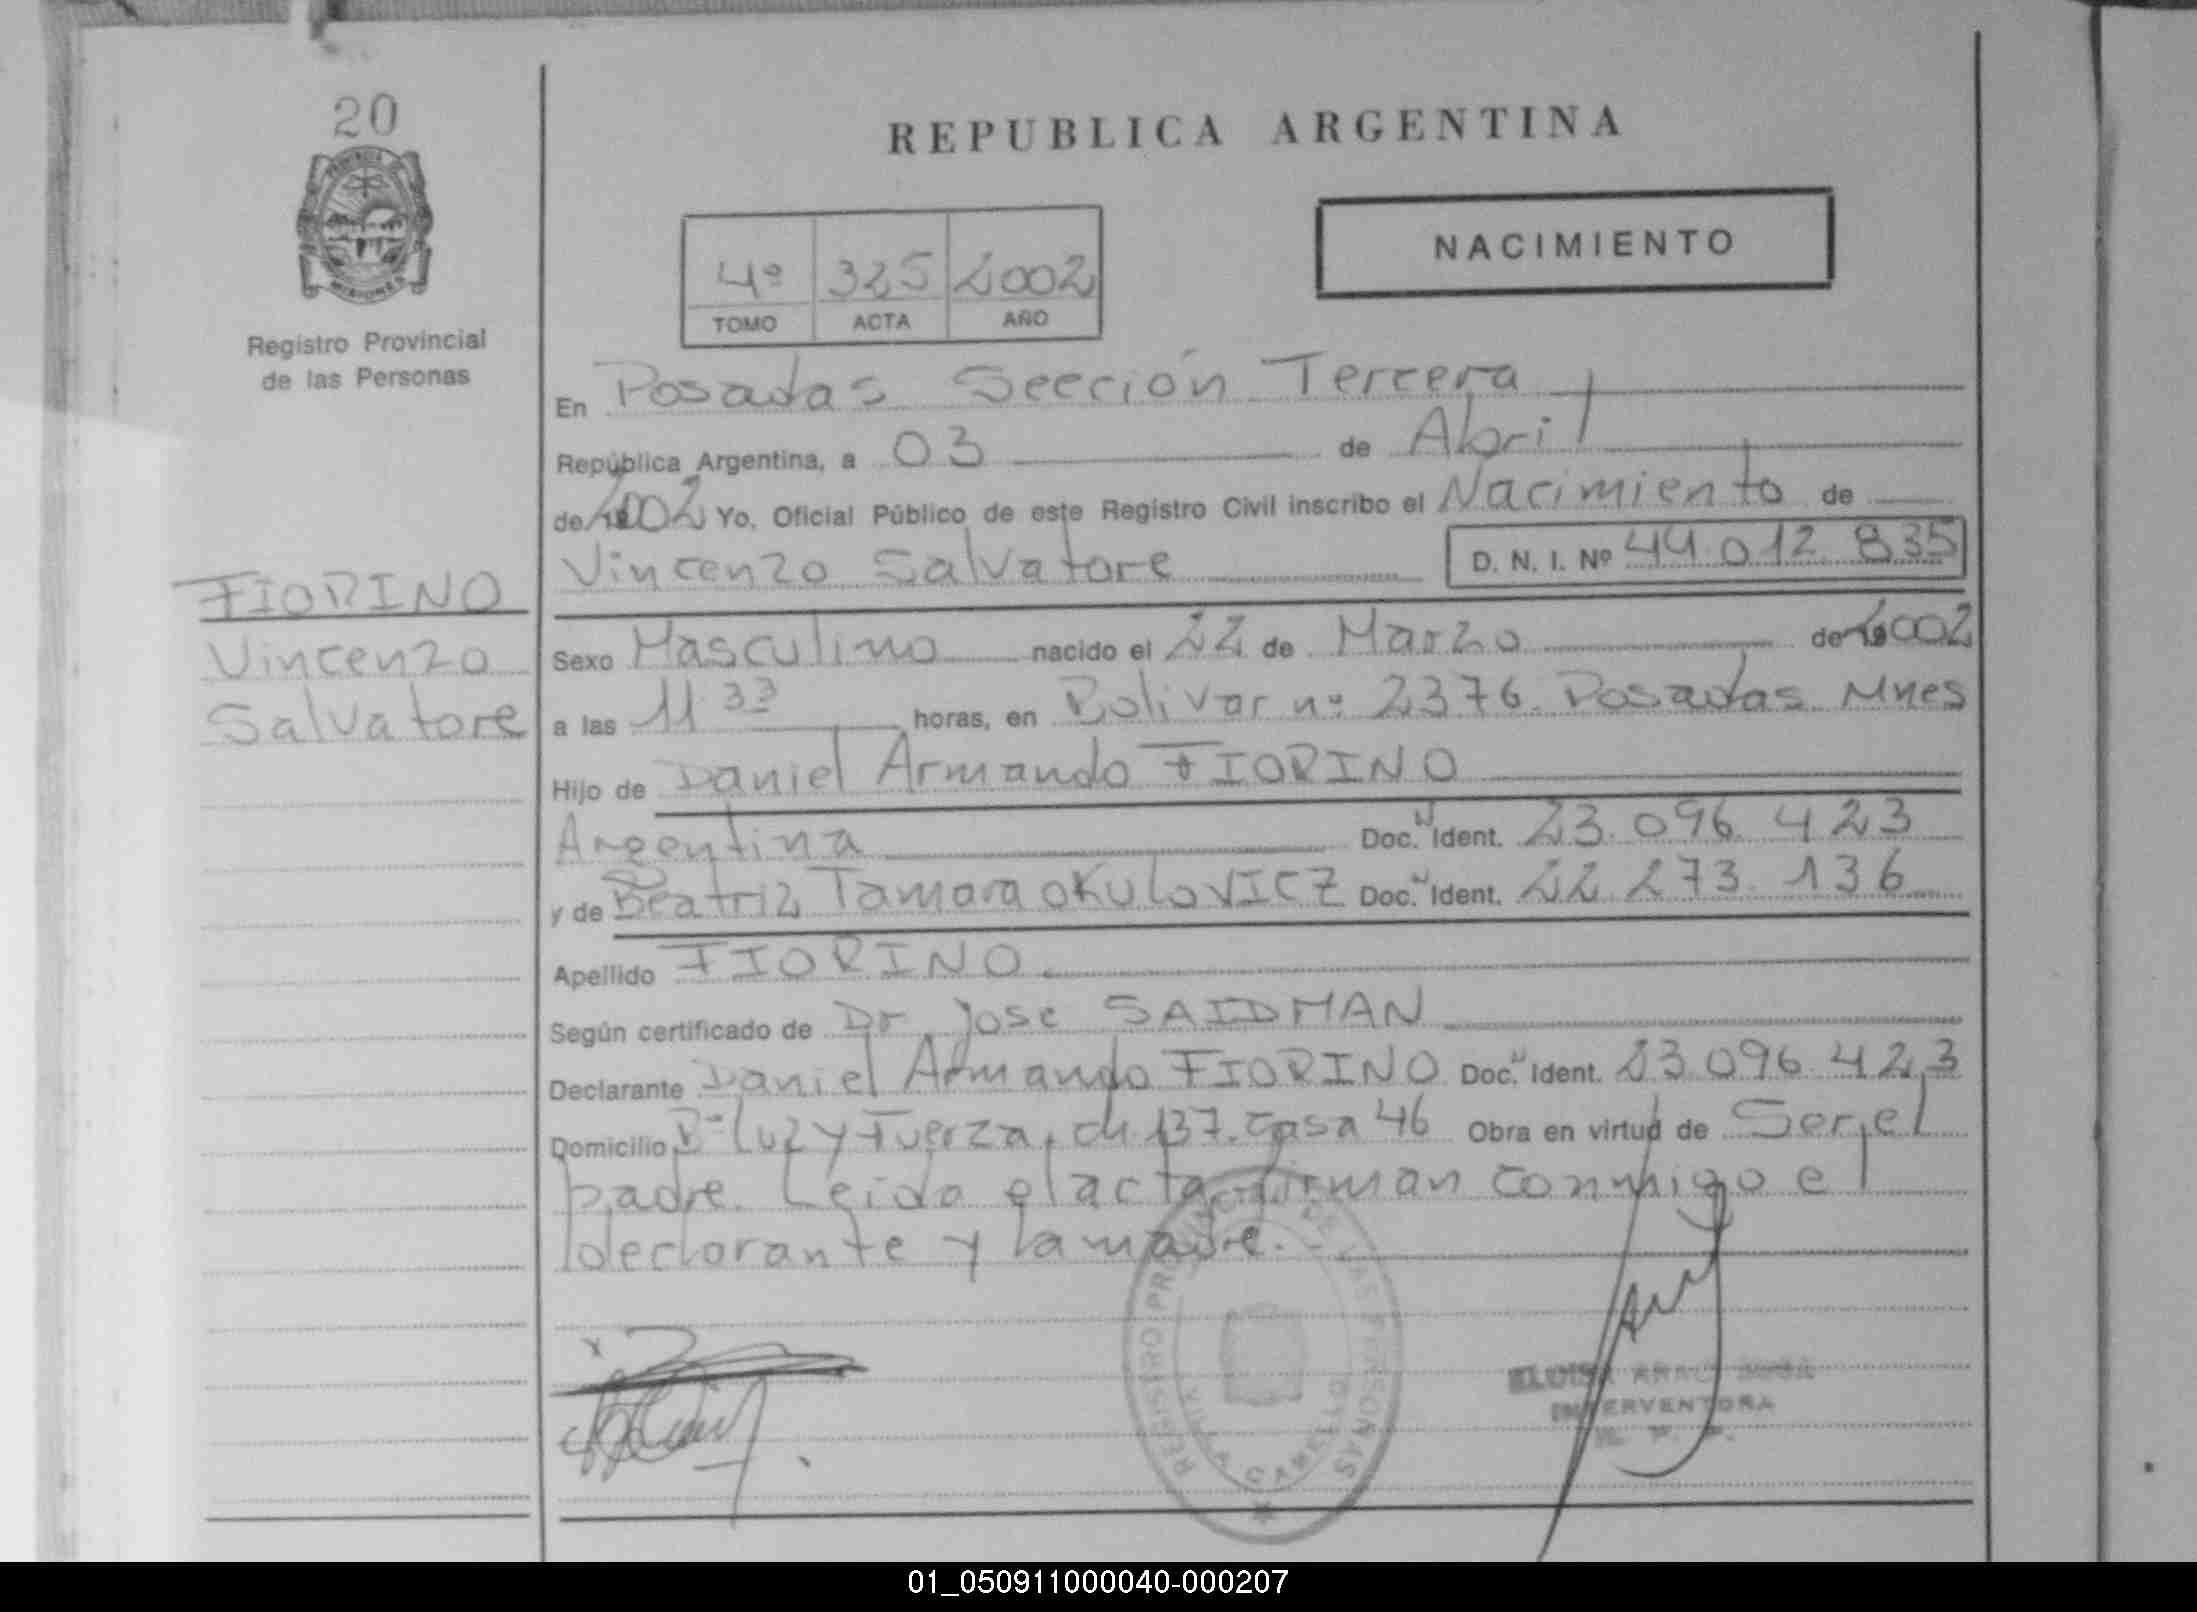 20
Registro Provincial
de las Personas
FIORINO
Vincenzo
Salvatore
REPUBLICA ARGENTINA
NACIMIENTO
4º 325 2002
TOMO ACTA AÑO
En Posadas Sección Tercera
República Argentina, a 03 de Abril
de 2002 Yo, Oficial Público de este Registro Civil inscribo el Nacimiento de
Vincenzo Salvatore D. N. I. Nº 44.012.835
Sexo Masculino nacido el 22 de Marzo de 2002
a las 11 33 horas, en Bolivar nº 2376. Posadas Mnes
Hijo de Daniel Armando FIORINO
Argentina Doc. Ident. 23.096.423
y de Beatriz Tamara OKULOVICZ Doc. Ident. 22.273.136
Apellido FIORINO
Según certificado de Dr. Jose SAIDMAN
Declarante Daniel Armando FIORINO Doc. Ident. 23.096.423
Domicilio Bº Luz y Fuerza, ch. 137. casa 46 Obra en virtud de Ser el
padre. Leida el acta firman conmigo el
declarante y la madre.
REGISTRO PROVINCIAL DE LAS PERSONAS
VILLA CABELLO
INTERVENTORA
01_050911000040-000207